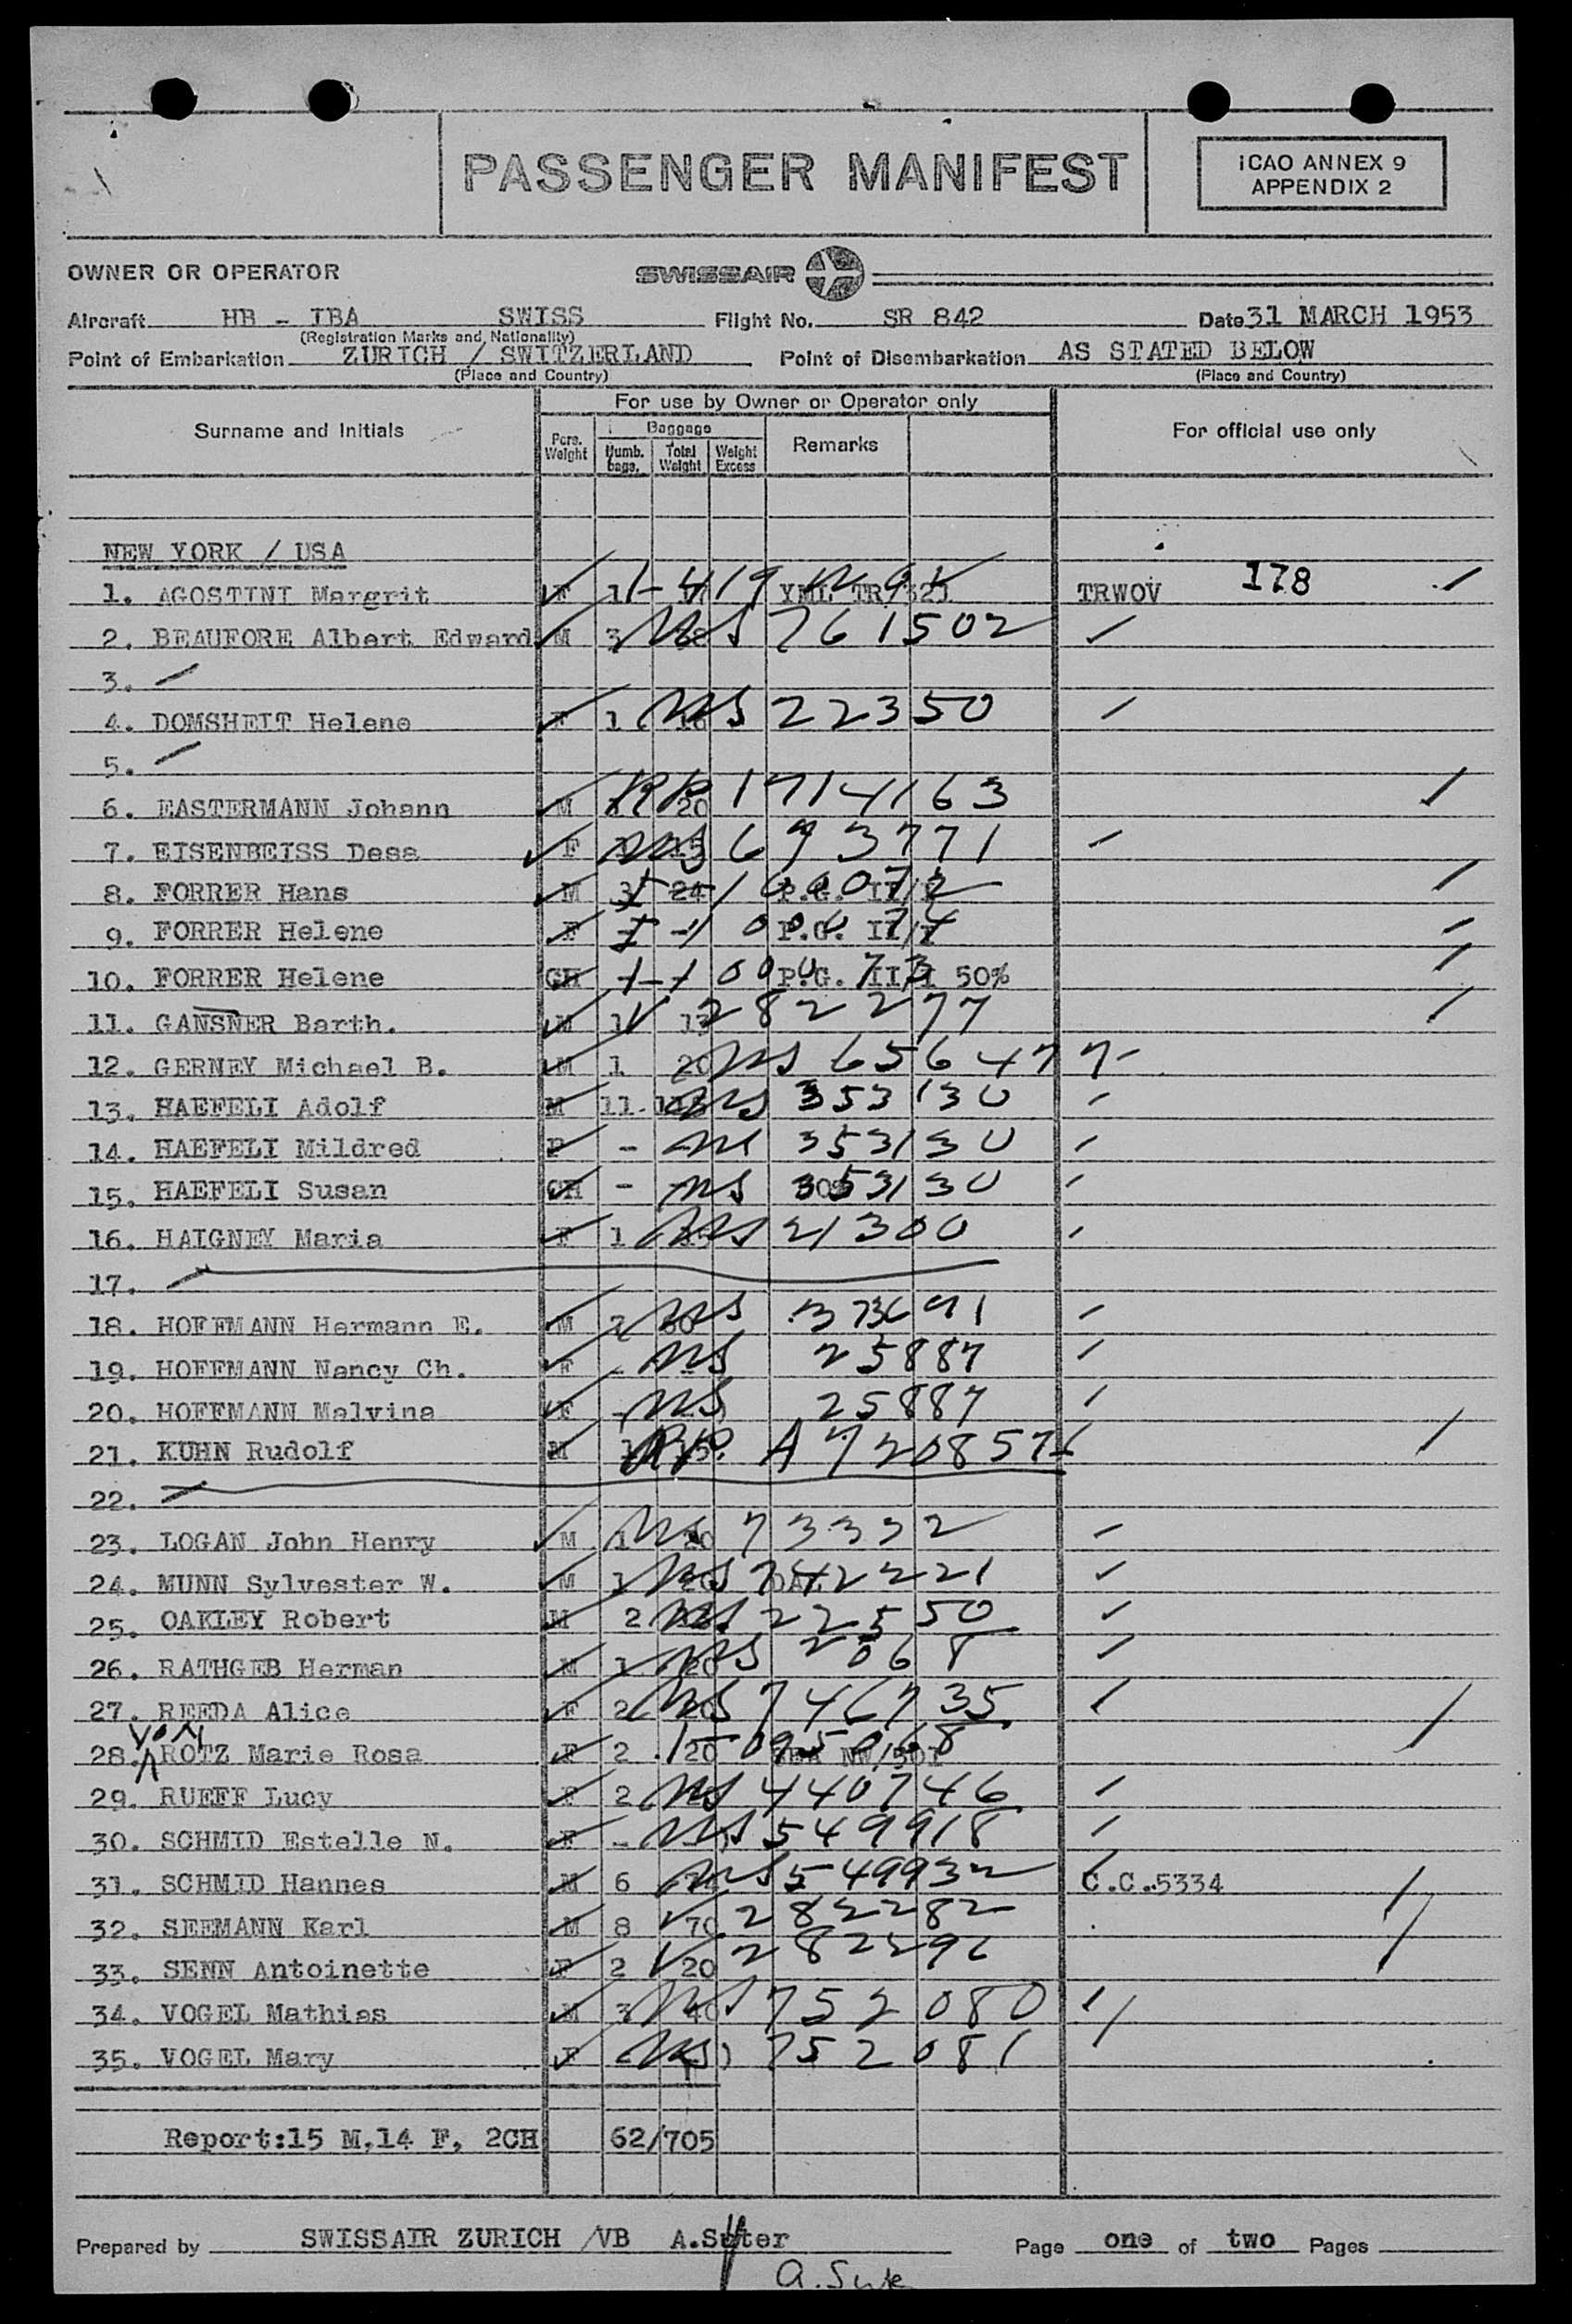 PASSENGER MANIFEST
ICAO ANNEX 9
APPENDIX 2
OWNER OR OPERATOR SWISSAIR
Aircraft HB - IBA SWISS Flight No. SR 842 Date 31 MARCH 1953
(Registration Marks and Nationality)
Point of Embarkation ZURICH / SWITZERLAND Point of Disembarkation AS STATED BELOW
(Place and Country) (Place and Country)
For use by Owner or Operator only
Surname and Initials Pers. Weight Baggage Numb. bags. Total Weight Weight Excess Remarks For official use only
NEW YORK / USA
1. AGOSTINI Margrit F 1 TRWOV 178
2. BEAUFORE Albert Edward M 3 NS 761502
3.
4. DOMSHEIT Helene F 1 16 NS 22350
5.
6. EASTERMANN Johann M 20 RP 1714163
7. EISENBEISS Desa F 15 NS 693771
8. FORRER Hans M 3 24 P.G. II/I
9. FORRER Helene F - - P.G. II/I
10. FORRER Helene CH - - P.G. II/I 50%
11. GANSNER Barth. M 1 V 282277
12. GERNEY Michael B. M 1 20 NS 656477
13. HAEFELI Adolf M 11 NS 353130
14. HAEFELI Mildred F - NS 353130
15. HAEFELI Susan CH - NS 353130
16. HAIGNEY Maria F 1 NS 21300
17.
18. HOFFMANN Hermann E. M NS 373691
19. HOFFMANN Nancy Ch. F - NS 25887
20. HOFFMANN Malvina F - NS 25887
21. KUHN Rudolf M 1 15 RP A
22.
23. LOGAN John Henry M 1 20 NS 73332
24. MUNN Sylvester W. M 1 20 NS 742221
25. OAKLEY Robert M 2 NS 22550
26. RATHGEB Herman M 1 20 NS 2068
27. REEDA Alice F 2 20 NS 746735
28. VON ROTZ Marie Rosa F 2 20
29. RUEFF Lucy F 2 NS 440746
30. SCHMID Estelle N. F - NS 549918
31. SCHMID Hannes M 6 NS 549932 C.C.5334
32. SEEMANN Karl M 8 70 V 282282
33. SENN Antoinette F 2 20 V 282296
34. VOGEL Mathias M 3 40 NS 752080
35. VOGEL Mary F - NS 752081
Report:15 M,14 F, 2CH 62/705
Prepared by SWISSAIR ZURICH /VB A.Suter Page one of two Pages